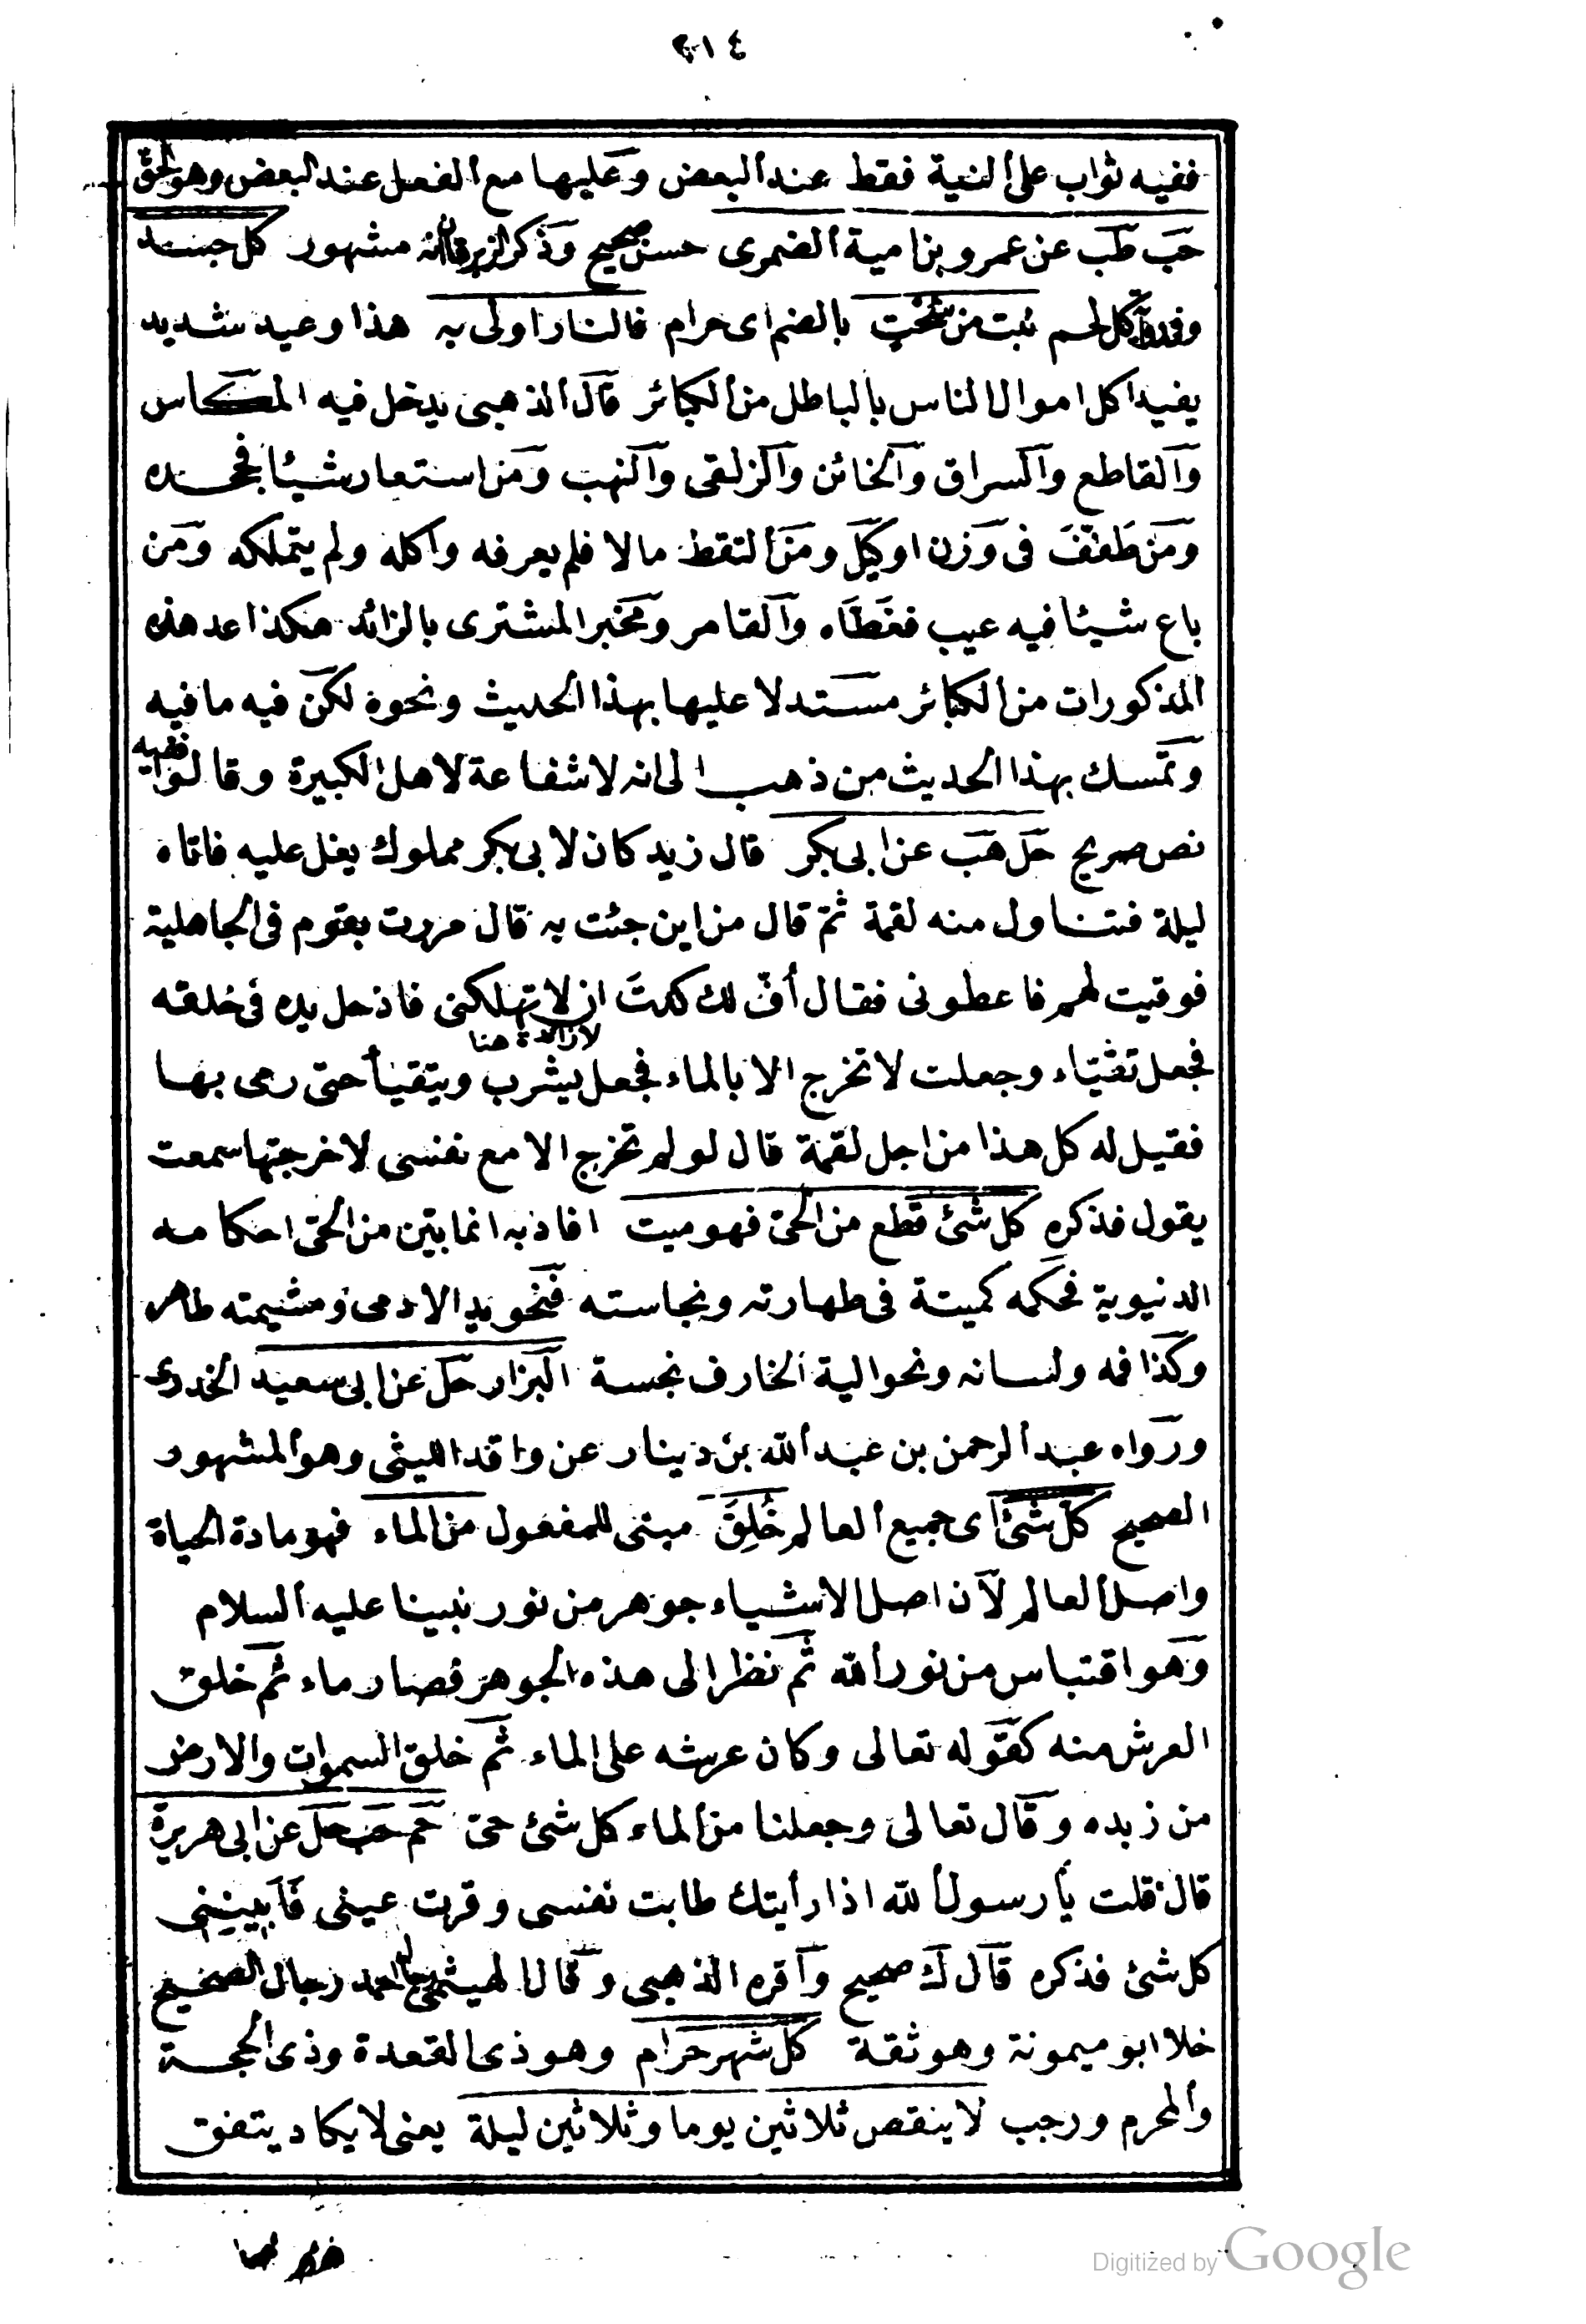 ٢١٤
ففيه ثواب على النية فقط عند البعض وعليها مع الفعل عند البعض وهو الحق
حب طب عن عمرو بن امية الضمرى حسن صحيح وذكر الزرقانى انه مشهور كل جسد
وفى رواية كل لحم نبت من سُحْتٍ بالضم اى حرام فالنار اولى به هذا وعيد شديد
يفيد اكل اموال الناس بالباطل من الكبائر قال الذهبى يدخل فيه المكاس
والقاطع والسراق والخائن والزلقى والنهب ومن استعار شيئا فجحده
ومن طَفّفَ فى وزن او كيل ومن التقط مالا فلم يعرفه واكله ولم يتملكه ومن
باع شيئا فيه عيب فغطاه والقامر ومخبر المشترى بالزائد هكذا عد هذه
المذكورات من الكبائر مستدلا عليها بهذا الحديث ونحوه لكن فيه ما فيه
وتمسك بهذا الحديث من ذهب الى انه لا شفاعة لاهل الكبيرة وقالوا ففيه
نص صريح حل هب عن ابى بكر قال زيد كان لابى بكر مملوك يغل عليه فاتاه
ليلة فتناول منه لقمة ثم قال من اين جئت به قال مررت بقوم فى الجاهلية
فوقيت لهم فاعطونى فقال أفّ لك كدتَ ان لا تهلكنى فادخل يده فى خلقه
لا زائدة هنا
فجعل تقيّاء وجعلت لا تخرج الا بالماء فجعل يشرب ويتقيأ حتى رمى بها
فقيل له كل هذا من اجل لقمة قال لو لم تخرج الا مع نفسى لاخرجتها سمعت
يقول فذكره كل شئ قطع من الحىّ فهو ميت افاد به انما يتين من الحى احكامه
الدنيوية فحكمه كميتة فى طهارته ونجاسته فنحو يد الادمى ومشيمته طاهر
وكذا فمه ولسانه ونحو الية الخارف نجسة البزار حل عن ابى سعيد الخدرى
ورواه عبد الرحمن بن عبد الله بن دينار عن واقد الليثى وهو المشهور
الصحيح كل شئ اى جميع العالم خُلِقَ مبنى للمفعول من الماء فهو مادة الحياة
واصل العالم لآن اصل الاشياء جوهر من نور نبينا عليه السلام
وهو اقتباس من نور الله ثم نظر الى هذه الجوهر فصار ماء ثم خلق
العرش منه كقوله تعالى وكان عرشه على الماء ثم خلق السموات والارض
من زبده وقال تعالى وجعلنا من الماء كل شئ حىّ حم حب حل عن ابى هريرة
قال قلت يا رسول الله اذا رأيتك طابت نفسى وقرت عينى فأبينينى
كل شئ فذكره قال ك صحيح واقره الذهبى وقال الهيثمى رجال احمد رجال الصحيح
خلا ابو ميمونة وهو ثقة كل شهر حرام وهو ذى القعدة وذى الحجة
والمحرم ورجب لا ينقص ثلاثين يوما وثلاثين ليلة يعنى لا يكاد يتفق
Digitized by Google